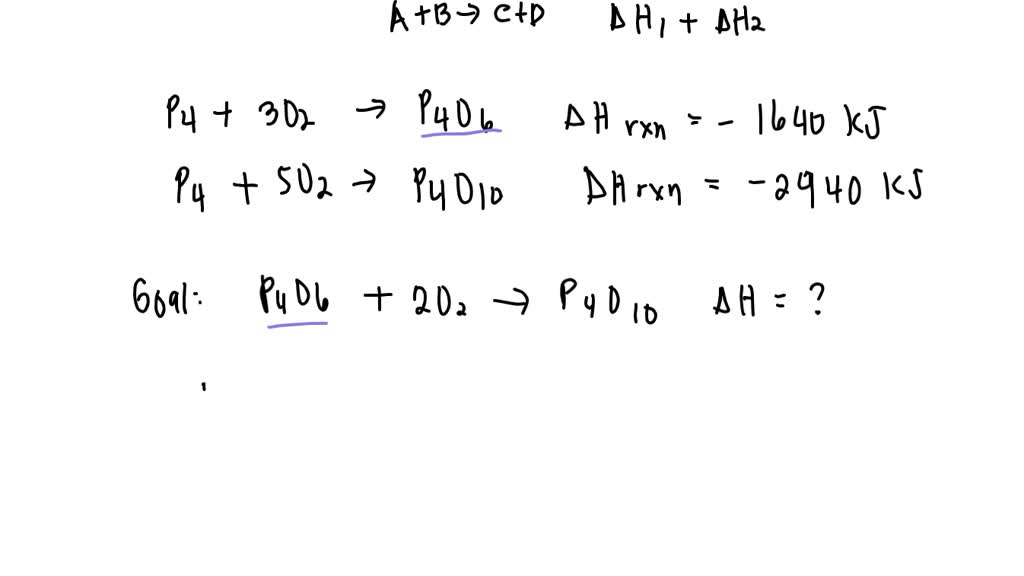 A + B → C + D ΔH₁ + ΔH₂
P₄ + 3O₂ → P₄O₆ ΔH rxn = - 1640 kJ
P₄ + 5O₂ → P₄O₁₀ ΔH rxn = -2940 kJ
Goal: P₄O₆ + 2O₂ → P₄O₁₀ ΔH = ?